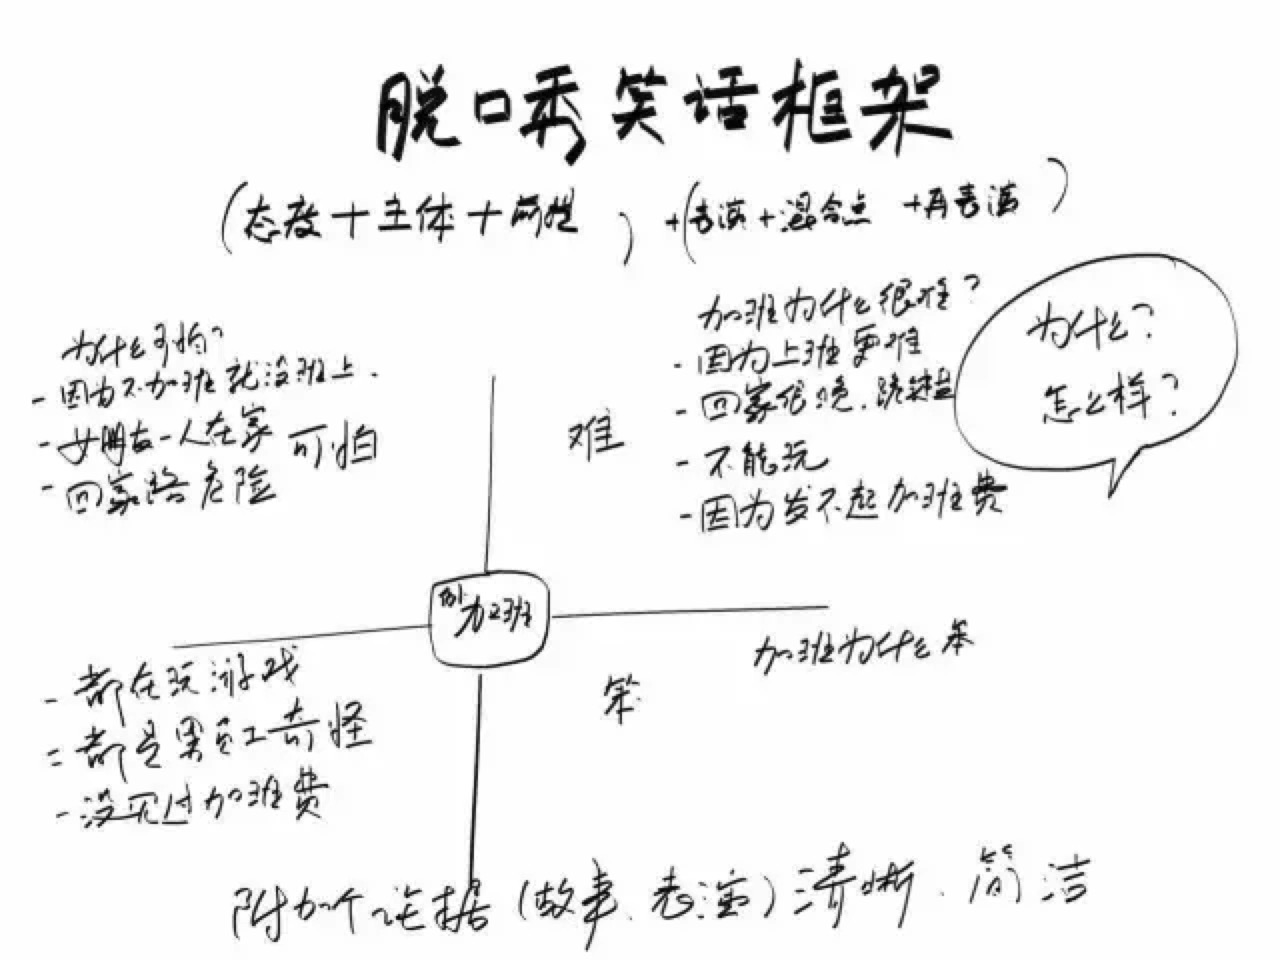 脱口秀笑话框架
(态度+主体+前提)+(表演+混合点+再表演)
为什么可怕?
-因为不加班就没班上.
-女朋友一人在家
-回家路危险
可怕
难
加班为什么很难?
-因为上班更难
-回家很晚.
-不能玩
-因为发不起加班费
为什么?
怎么样?
例 加班
-都在玩游戏
-都是男员工
-没见过加班费
奇怪
笨
加班为什么笨
附加个论据(故事、表演)清晰、简洁